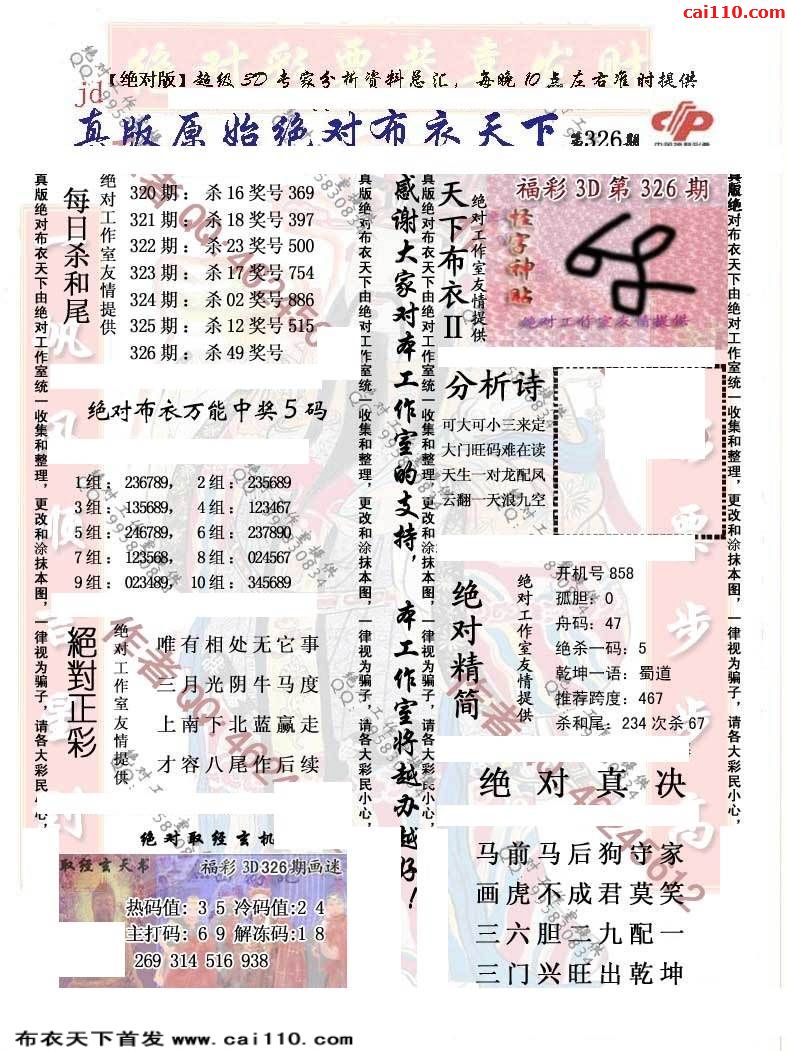 cai110.com
【绝对版】超级3D专家分析资料总汇，每晚10点左右准时提供
jd
真版原始绝对布衣天下 第326期
真版绝对布衣天下由绝对工作室统一收集和整理，更改和涂抹本图，一律视为骗子，请各大彩民小心，
每日杀和尾
绝对工作室友情提供
320期：杀16奖号369
321期：杀18奖号397
322期：杀23奖号500
323期：杀17奖号754
324期：杀02奖号886
325期：杀12奖号515
326期：杀49奖号
绝对布衣万能中奖5码
1组：236789， 2组：235689
3组：135689， 4组：123467
5组：246789， 6组：237890
7组：123568， 8组：024567
9组：023489， 10组：345689
絕對正彩
绝对工作室友情提供
唯有相处无它事
三月光阴牛马度
上南下北蓝赢走
才容八尾作后续
绝对取经玄机
取经玄天书 福彩3D326期画迷
热码值：35冷码值:24
主打码：69解冻码:18
269 314 516 938
真版绝对布衣天下由绝对工作室统一收集和整理，更改和涂抹本图，一律视为骗子，请各大彩民小心，
感谢大家对本工作室的支持，本工作室将越办越好！
真版绝对布衣天下由绝对工作室统一收集和整理，更改和涂抹本图，一律视为骗子，请各大彩民小心，
天下布衣II
绝对工作室友情提供
福彩3D第326期
怪字神贴
绝对工作室友情提供
分析诗
可大可小三来定
大门旺码难在读
天生一对龙配凤
云翻一天浪九空
绝对精简
绝对工作室友情提供
开机号858
孤胆：0
舟码：47
绝杀一码：5
乾坤一语：蜀道
推荐跨度：467
杀和尾：234次杀67
绝对真决
马前马后狗守家
画虎不成君莫笑
三六胆二九配一
三门兴旺出乾坤
真版绝对布衣天下由绝对工作室统一收集和整理，更改和涂抹本图，一律视为骗子，请各大彩民小心，
布衣天下首发 www.cai110.com